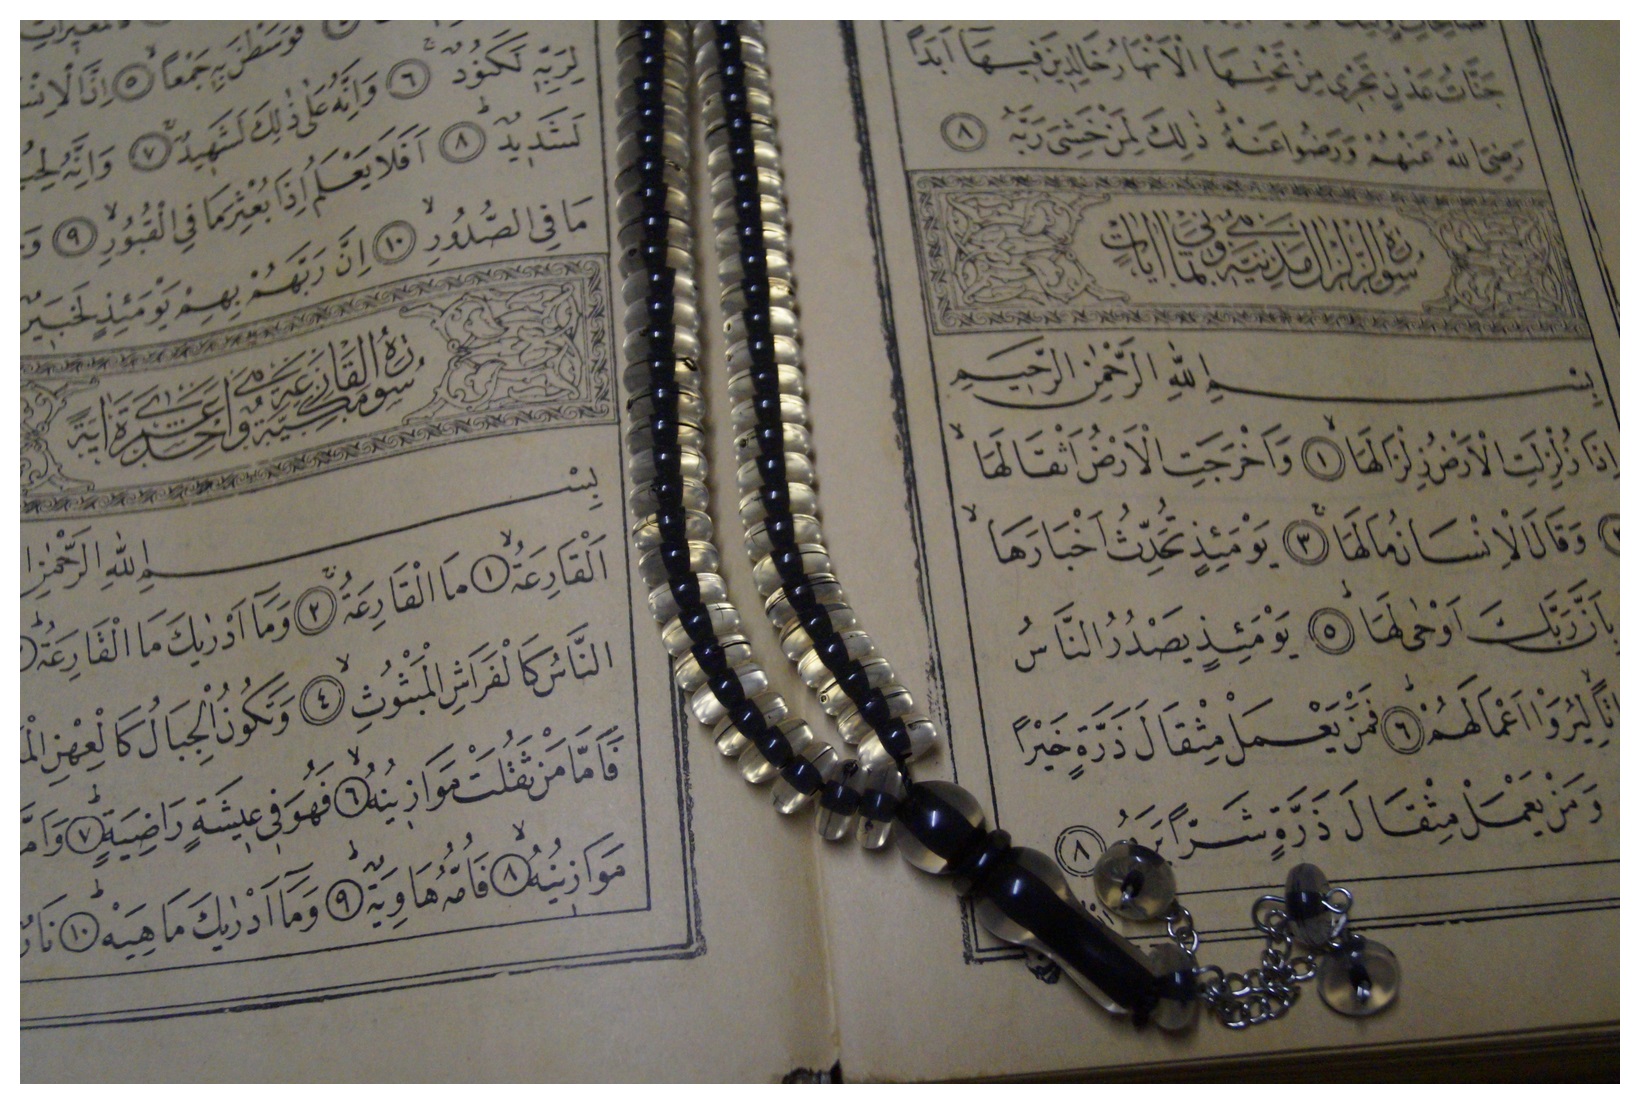 جَنَّاتُ عَدْنٍ تَجْرِى مِنْ تَحْتِهَا الْاَنْهَارُ خَالِدِينَ فِيهَا اَبَدًا
رَضِىَ اللهُ عَنْهُمْ وَرَضُوا عَنْهُ ذٰلِكَ لِمَنْ خَشِىَ رَبَّهُ ٨
سُورَةُ الزِّلْزَالِ مَدَنِيَّةٌ وَهِىَ ثَمَانِى اٰيَاتٍ
بِسْمِ اللهِ الرَّحْمٰنِ الرَّحِيمِ
اِذَا زُلْزِلَتِ الْاَرْضُ زِلْزَالَهَا ١ وَاَخْرَجَتِ الْاَرْضُ اَثْقَالَهَا
٢ وَقَالَ الْاِنْسَانُ مَالَهَا ٣ يَوْمَئِذٍ تُحَدِّثُ اَخْبَارَهَا
بِاَنَّ رَبَّكَ اَوْحٰى لَهَا ٥ يَوْمَئِذٍ يَصْدُرُ النَّاسُ
لِيُرَوْا اَعْمَالَهُمْ ٦ فَمَنْ يَعْمَلْ مِثْقَالَ ذَرَّةٍ خَيْرًا
وَمَنْ يَعْمَلْ مِثْقَالَ ذَرَّةٍ شَرًّا يَرَهُ ٨
فَوَسَطْنَ بِهِ جَمْعًا ٥ اِنَّ الْاِنْسَ
لِرَبِّهِ لَكَنُودٌ ٦ وَاِنَّهُ عَلٰى ذٰلِكَ لَشَهِيدٌ ٧ وَاِنَّهُ لِحُبِّ
لَشَدِيدٌ ٨ اَفَلَا يَعْلَمُ اِذَا بُعْثِرَ مَا فِى الْقُبُورِ ٩
مَا فِى الصُّدُورِ ١٠ اِنَّ رَبَّهُمْ بِهِمْ يَوْمَئِذٍ لَخَبِيرٌ
سُورَةُ الْقَارِعَةِ مَكِّيَّةٌ وَهِىَ اِحْدٰى عَشْرَةَ اٰيَةً
بِسْمِ اللهِ الرَّحْمٰنِ
اَلْقَارِعَةُ ١ مَا الْقَارِعَةُ ٢ وَمَا اَدْرٰيكَ مَا الْقَارِعَةُ
النَّاسُ كَالْفَرَاشِ الْمَبْثُوثِ ٤ وَتَكُونُ الْجِبَالُ كَالْعِهْنِ
فَاَمَّا مَنْ ثَقُلَتْ مَوَازِينُهُ ٦ فَهُوَ فِى عِيشَةٍ رَاضِيَةٍ ٧ وَاَمَّا
مَوَازِينُهُ ٨ فَاُمُّهُ هَاوِيَةٌ ٩ وَمَا اَدْرٰيكَ مَا هِيَهْ ١٠ نَارٌ